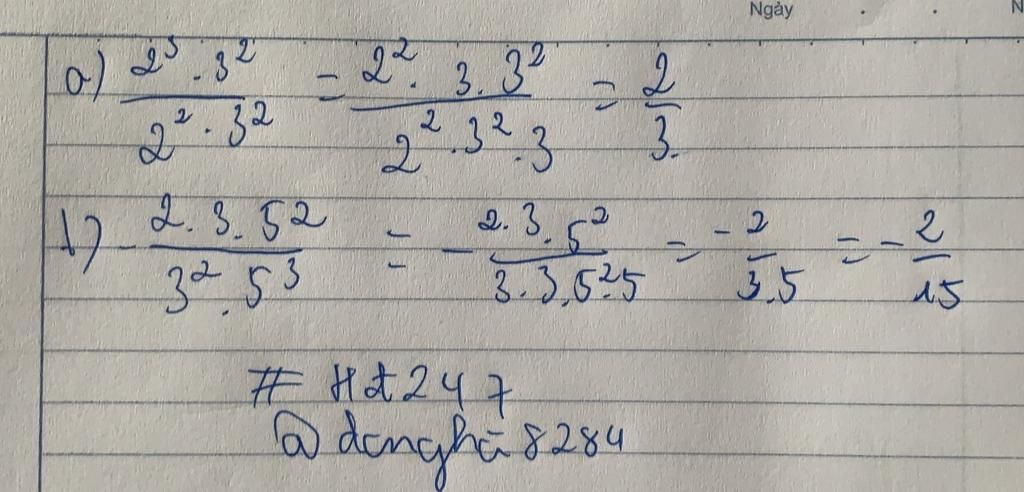 Ngày . . N
a) 2³ . 3² / 2² . 3² = 2² . 3 . 3² / 2² . 3² . 3 = 2 / 3.
b) - 2 . 3 . 5² / 3² . 5³ = - 2 . 3 . 5² / 3 . 3 . 5² . 5 = - 2 / 3 . 5 = - 2 / 15
# Hđ247
@ dongha 8284